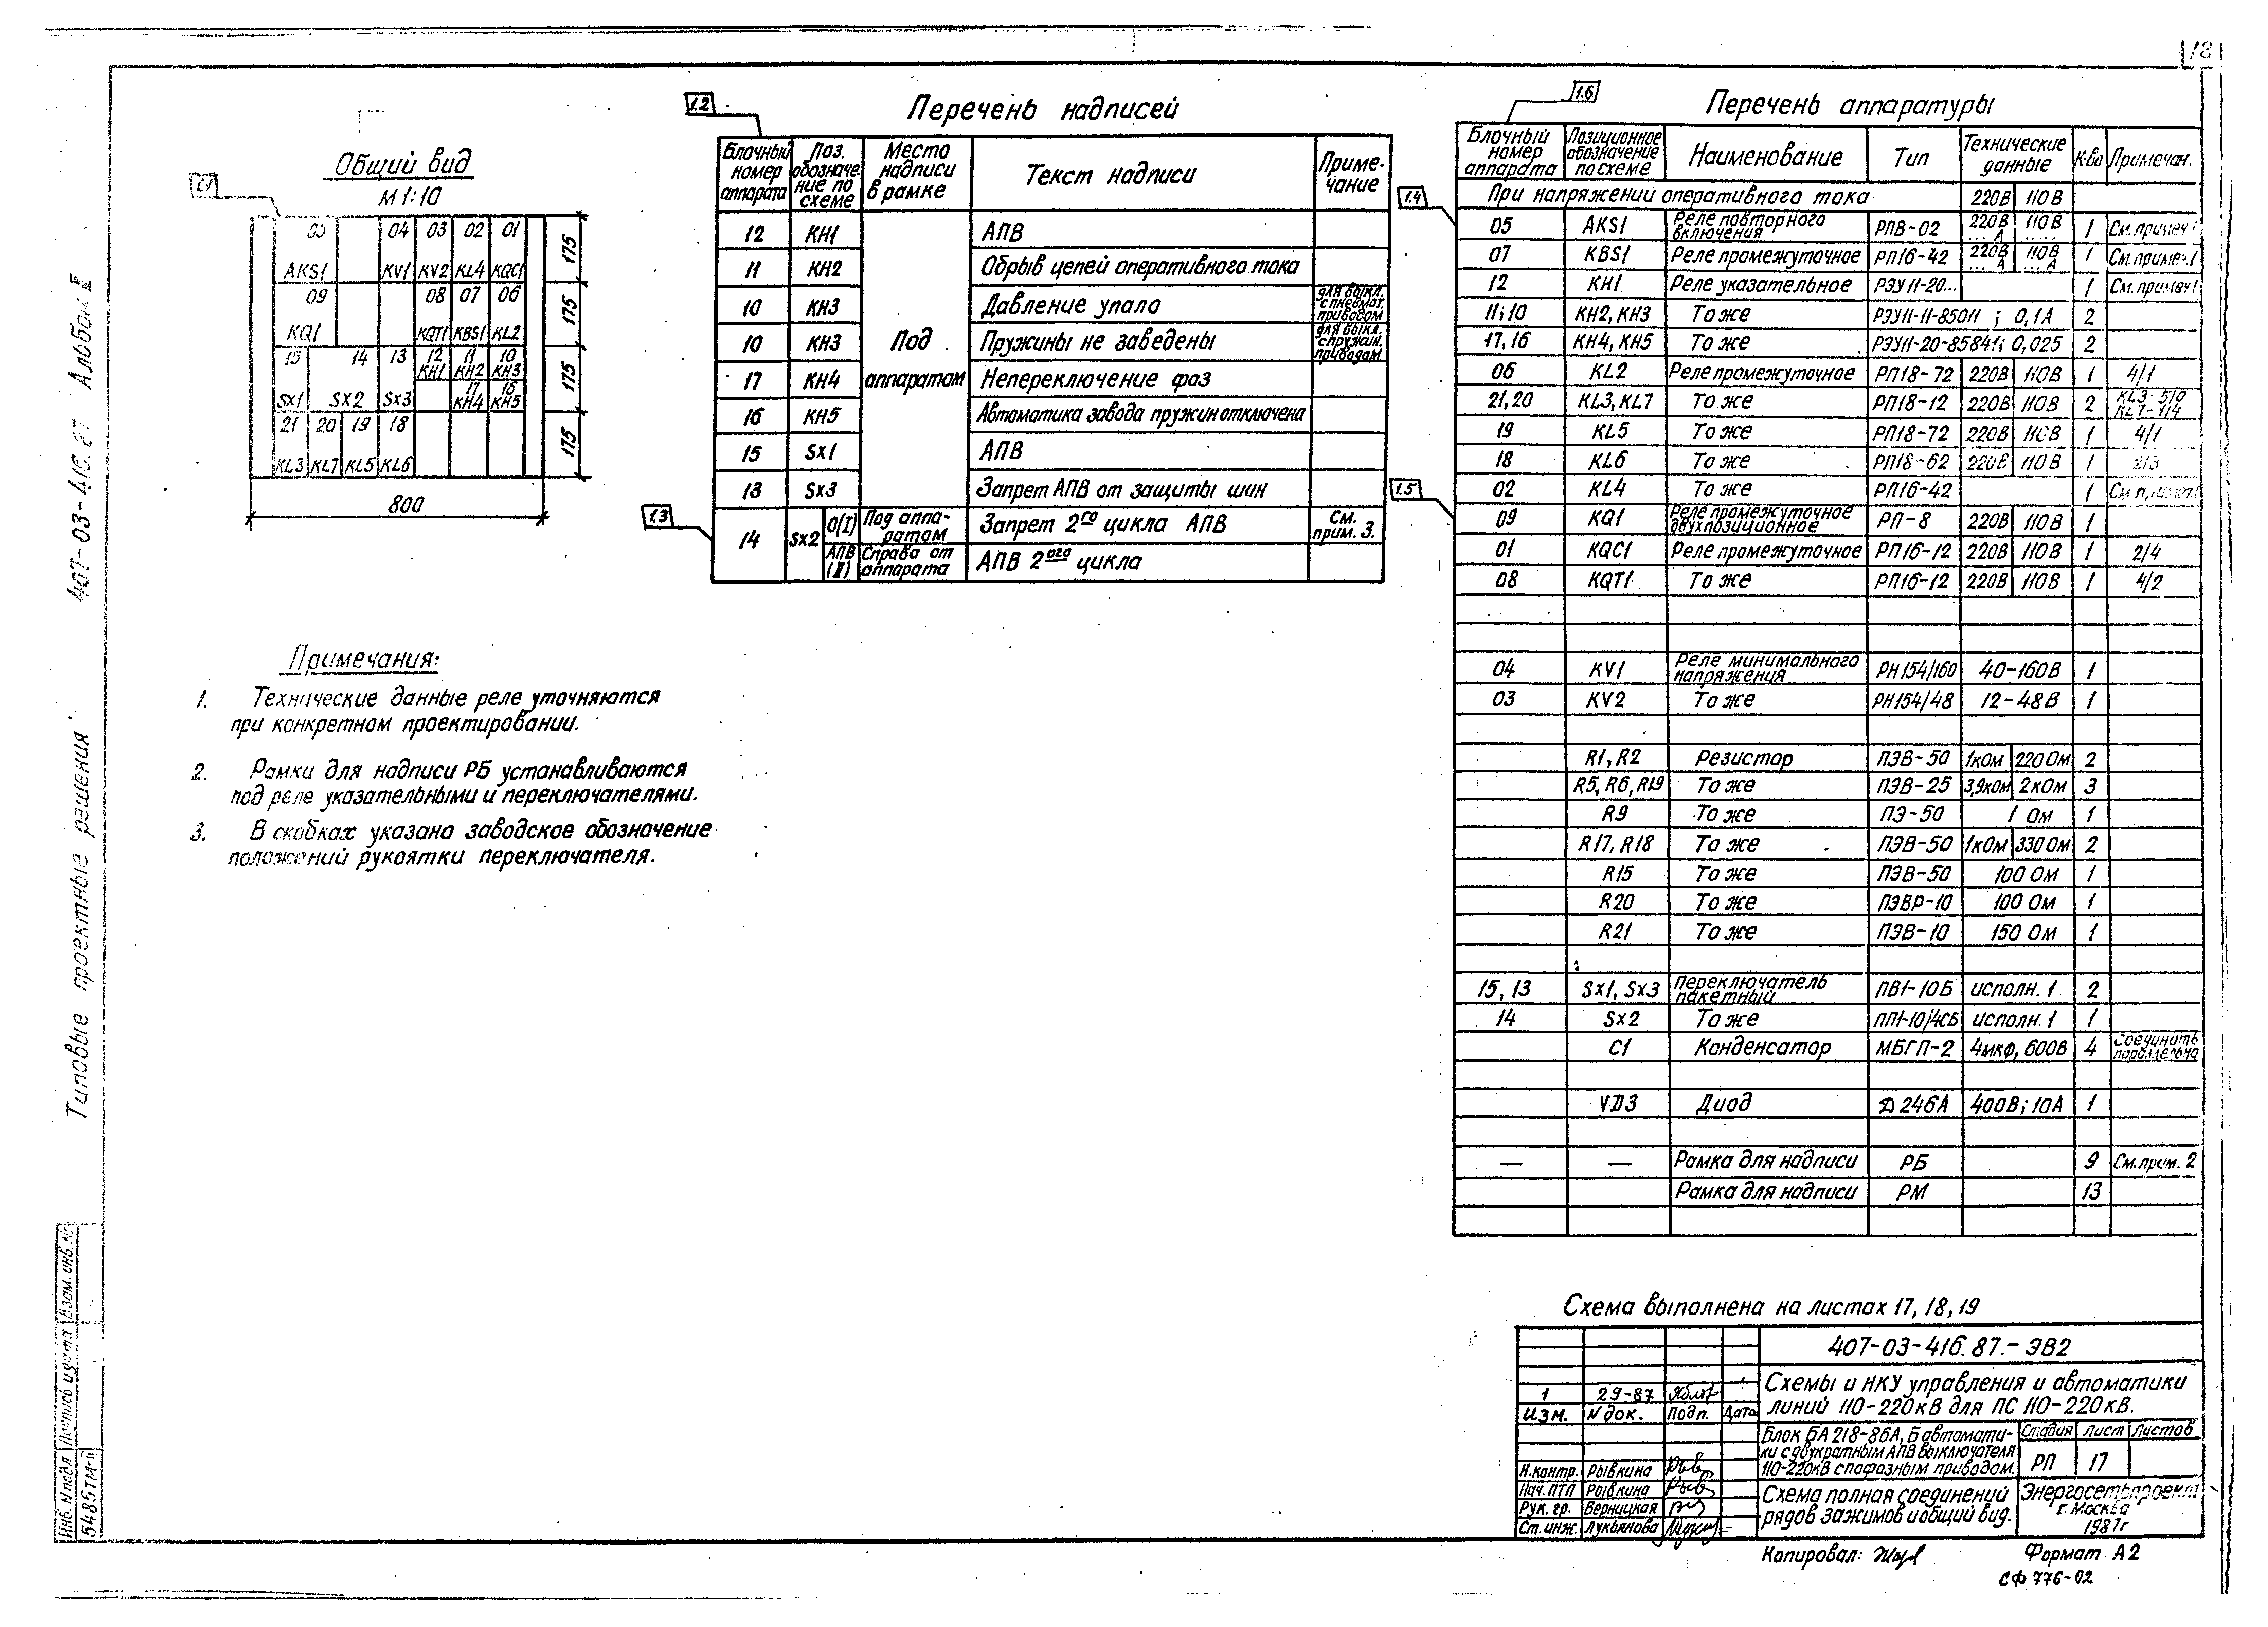 18
Общий вид
М 1:10
05 04 03 02 01
AKS1 KV1 KV2 KL4 KQC1
175
09 08 07 06
KQ1 KQT1 KBS1 KL2
175
15 14 13 12 11 10
KH1 KH2 KH3
17 16
SX1 SX2 SX3 KH4 KH5
175
21 20 19 18
KL3 KL7 KL5 KL6
175
800
1.2
Перечень надписей
Блочный номер аппарата Поз. обозначение по схеме Место надписи в рамке Текст надписи Примечание
12 KH1 АПВ
11 KH2 Обрыв цепей оперативного тока
10 KH3 Давление упало для выкл. с пневмат. приводом
10 KH3 Под Пружины не заведены для выкл. с пружин. приводом
17 KH4 аппаратом Непереключение фаз
16 KH5 Автоматика завода пружин отключена
15 SX1 АПВ
13 SX3 Запрет АПВ от защиты шин
1.3
14 SX2 0(I) Под аппаратом Запрет 2го цикла АПВ См. прим. 3.
АПВ (II) Справа от аппарата АПВ 2ого цикла
Примечания:
1. Технические данные реле уточняются
при конкретном проектировании.
2. Рамки для надписи РБ устанавливаются
под реле указательными и переключателями.
3. В скобках указано заводское обозначение
положений рукоятки переключателя.
1.6
Перечень аппаратуры
Блочный номер аппарата Позиционное обозначение по схеме Наименование Тип Технические данные К-во Примечан.
1.4
При напряжении оперативного тока 220В 110В
05 AKS1 Реле повторного включения РПВ-02 220В ...А 110В ..... 1 См. примеч.1
07 KBS1 Реле промежуточное РП16-42 220В ...А 110В ...А 1 См. примеч.1
12 KH1 Реле указательное РЭУ11-20... 1 См. примеч.1
11; 10 KH2, KH3 То же РЭУ11-11-85011 ; 0,1А 2
17, 16 KH4, KH5 То же РЭУ11-20-85841; 0,025 2
06 KL2 Реле промежуточное РП18-72 220В 110В 1 4/1
21, 20 KL3, KL7 То же РП18-12 220В 110В 2 KL3-5/0 KL7-1/4
19 KL5 То же РП18-72 220В 110В 1 4/1
18 KL6 То же РП18-62 220В 110В 1 2/3
1.5
02 KL4 То же РП16-42 1 См. примеч.1
09 KQ1 Реле промежуточное двухпозиционное РП-8 220В 110В 1
01 KQC1 Реле промежуточное РП16-12 220В 110В 1 2/4
08 KQT1 То же РП16-12 220В 110В 1 4/2
04 KV1 Реле минимального напряжения РН154/160 40-160В 1
03 KV2 То же РН154/48 12-48В 1
R1, R2 Резистор ПЭВ-50 1кОм 220 Ом 2
R5, R6, R19 То же ПЭВ-25 3,9кОм 2кОм 3
R9 То же ПЭ-50 1 Ом 1
R17, R18 То же ПЭВ-50 1кОм 330 Ом 2
R15 То же ПЭВ-50 100 Ом 1
R20 То же ПЭВР-10 100 Ом 1
R21 То же ПЭВ-10 150 Ом 1
15, 13 SX1, SX3 Переключатель пакетный ПВ1-10Б исполн. 1 2
14 SX2 То же ПП1-10/4СБ исполн. 1 1
C1 Конденсатор МБГП-2 4мкф, 600В 4 Соединить параллельно
VD3 Диод Д 246А 400В; 10А 1
— — Рамка для надписи РБ 9 См. прим. 2
Рамка для надписи РМ 13
Схема выполнена на листах 17, 18, 19
407-03-416.87.-ЭВ2
Схемы и НКУ управления и автоматики
линий 110-220кВ для ПС 110-220кВ.
1 29-87
Изм. N док. Подп. Дата
Блок БА 218-86А, Б автомати-
ки с двукратным АПВ выключателя
110-220кВ с пофазным приводом.
Стадия Лист Листов
РП 17
Н.контр. Рывкина
Нач. ПТП Рывкина
Рук. гр. Верницкая
Ст. инж. Лукьянова
Схема полная соединений
рядов зажимов и общий вид.
Энергосетьпроект
г. Москва
1987г
Копировал:
Формат А2
СФ 776-02
Типовые проектные решения 407-03-416.87 Альбом II
Инв. N подл. Подпись и дата Взам. инв. №
5485тм-II